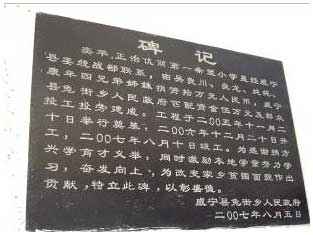 碑记
奕华、正治仇丽第一希望小学是经咸宁
县委统战部联系，由吴良川、良龙、纯祥、
康年四兄弟姊妹捐资拾万元人民币，咸宁
县兔街乡人民政府匹配资金伍万元及群众
投工投劳建成。工程于二00五年十一月二
十日举行奠基，二00六年十二月二十日开
工，二00七年八月十日竣工。为感谢捐方
兴学育才义举，同时激励本地学童努力学
习，奋发向上，为改变家乡贫困面貌作出
贡献，特立此碑，以彰盛德。
咸宁县兔街乡人民政府
二00七年八月五日